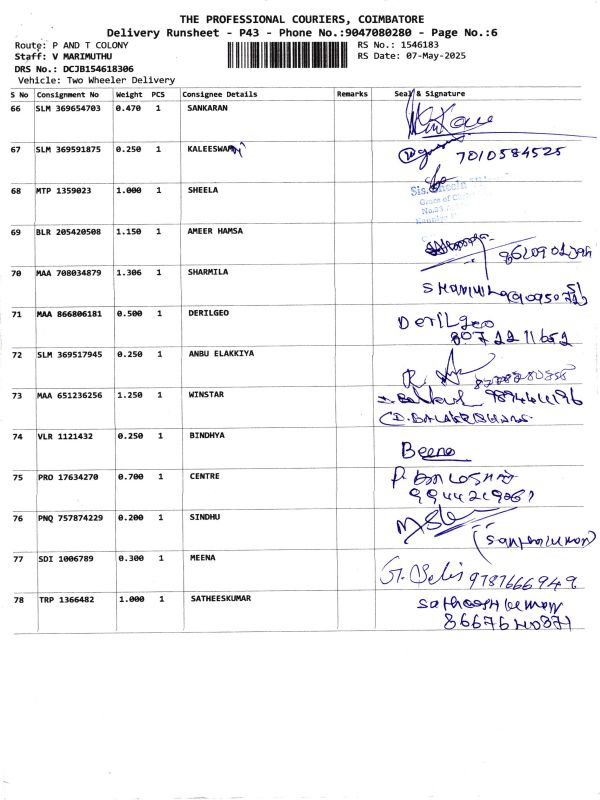 THE PROFESSIONAL COURIERS, COIMBATORE
Delivery Runsheet - P43 - Phone No.:9047080280 - Page No.:6
Route: P AND T COLONY RS No.: 1546183
Staff: V MARIMUTHU RS Date: 07-May-2025
DRS No.: DCJB154618306
Vehicle: Two Wheeler Delivery
S No Consignment No Weight PCS Consignee Details Remarks Seal & Signature
66 SLM 369654703 0.470 1 SANKARAN
67 SLM 369591875 0.250 1 KALEESWARI 7010584525
68 MTP 1359023 1.000 1 SHEELA
69 BLR 205420508 1.150 1 AMEER HAMSA
70 MAA 708034879 1.306 1 SHARMILA
71 MAA 866806181 0.500 1 DERILGEO Derilgeo
8072211652
72 SLM 369517945 0.250 1 ANBU ELAKKIYA
73 MAA 651236256 1.250 1 WINSTAR
74 VLR 1121432 0.250 1 BINDHYA Beena
75 PRO 17634270 0.700 1 CENTRE
76 PNQ 757874229 0.200 1 SINDHU
77 SDI 1006789 0.300 1 MEENA 9787666949
78 TRP 1366482 1.000 1 SATHEESKUMAR